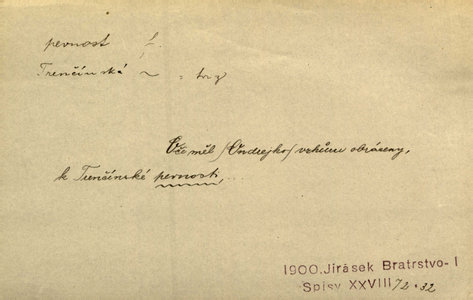 pevnost f.
Trenčínská ~
měl /Ondrejko/ vzhůru obráceny,
k Trenčínské pevnosti, ...
1900. Jirásek Bratrstvo-I
Spisy XXVIII 72.32